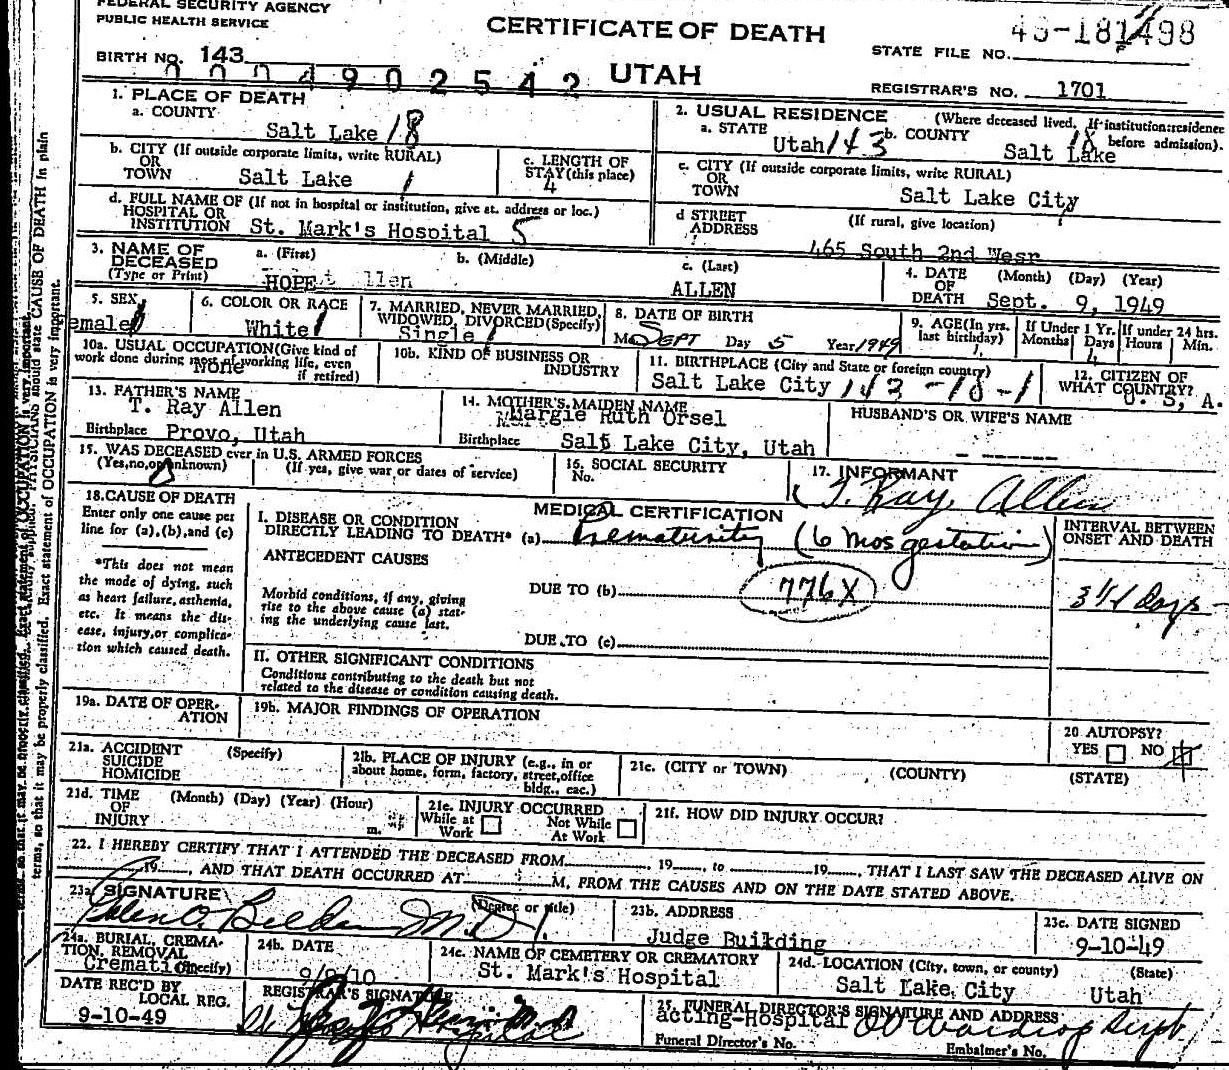 FEDERAL SECURITY AGENCY
PUBLIC HEALTH SERVICE
CERTIFICATE OF DEATH
STATE FILE NO.
BIRTH NO. 143
0004902542
UTAH
REGISTRAR'S NO. 1701
1. PLACE OF DEATH
a. COUNTY
Salt Lake 18
2. USUAL RESIDENCE (Where deceased lived. If institution: residence before admission).
a. STATE Utah 143 b. COUNTY Salt Lake 18
b. CITY (If outside corporate limits, write RURAL)
OR
TOWN Salt Lake 1
c. LENGTH OF
STAY (this place)
4
c. CITY (If outside corporate limits, write RURAL)
OR
TOWN Salt Lake City
d. FULL NAME OF (If not in hospital or institution, give st. address or loc.)
HOSPITAL OR
INSTITUTION St. Mark's Hospital 5
d STREET (If rural, give location)
ADDRESS
465 South 2nd Wesr
3. NAME OF
DECEASED
(Type or Print)
a. (First) b. (Middle) c. (Last)
HOPE ALLEN
4. DATE (Month) (Day) (Year)
OF
DEATH Sept. 9, 1949
5. SEX
emale
6. COLOR OR RACE
White
7. MARRIED, NEVER MARRIED,
WIDOWED, DIVORCED (Specify)
Single
8. DATE OF BIRTH
Mo SEPT Day 5 Year 1949
9. AGE (In yrs.
last birthday)
If Under 1 Yr.
Months Days
4
If under 24 hrs.
Hours Min.
10a. USUAL OCCUPATION (Give kind of
work done during most of working life, even
if retired)
None
10b. KIND OF BUSINESS OR
INDUSTRY
11. BIRTHPLACE (City and State or foreign country)
Salt Lake City 143-18-1
12. CITIZEN OF
WHAT COUNTRY?
U. S, A.
13. FATHER'S NAME
T. Ray Allen
Birthplace Provo, Utah
14. MOTHER'S MAIDEN NAME
Margie Ruth Orsel
Birthplace Salt Lake City, Utah
HUSBAND'S OR WIFE'S NAME
- ------
15. WAS DECEASED ever in U.S. ARMED FORCES
(Yes, no, or unknown) (If yes, give war or dates of service)
16. SOCIAL SECURITY
No.
17. INFORMANT
T. Ray Allen
18. CAUSE OF DEATH
Enter only one cause per
line for (a), (b), and (c)
*This does not mean
the mode of dying, such
as heart failure, asthenia,
etc. It means the dis-
ease, injury, or complica-
tion which caused death.
MEDICAL CERTIFICATION
I. DISEASE OR CONDITION
DIRECTLY LEADING TO DEATH* (a) Prematurity (6 mos gestation)
ANTECEDENT CAUSES
Morbid conditions, if any, giving
rise to the above cause (a) stat-
ing the underlying cause last.
DUE TO (b) 776X
DUE TO (c)
INTERVAL BETWEEN
ONSET AND DEATH
3 1/4 Days
II. OTHER SIGNIFICANT CONDITIONS
Conditions contributing to the death but not
related to the disease or condition causing death.
19a. DATE OF OPER-
ATION
19b. MAJOR FINDINGS OF OPERATION
20 AUTOPSY?
YES NO
21a. ACCIDENT (Specify)
SUICIDE
HOMICIDE
21b. PLACE OF INJURY (e.g., in or
about home, form, factory, street, office
bldg., eac.)
21c. (CITY or TOWN) (COUNTY) (STATE)
21d. TIME (Month) (Day) (Year) (Hour)
OF
INJURY m.
21e. INJURY OCCURRED
While at Work Not While At Work
21f. HOW DID INJURY OCCUR?
22. I HEREBY CERTIFY THAT I ATTENDED THE DECEASED FROM 19 , to 19 , THAT I LAST SAW THE DECEASED ALIVE ON
19 , AND THAT DEATH OCCURRED AT M, FROM THE CAUSES AND ON THE DATE STATED ABOVE.
23a. SIGNATURE (Degree or title)
M.D.
23b. ADDRESS
Judge Building
23c. DATE SIGNED
9-10-49
24a. BURIAL, CREMA-
TION, REMOVAL
(Specify)
Cremation
24b. DATE
24c. NAME OF CEMETERY OR CREMATORY
St. Mark's Hospital
24d. LOCATION (City, town, or county) (State)
Salt Lake City Utah
DATE REC'D BY
LOCAL REG.
9-10-49
REGISTRAR'S SIGNATURE
25. FUNERAL DIRECTOR'S SIGNATURE AND ADDRESS
acting-Hospital
Funeral Director's No. Embalmer's No.